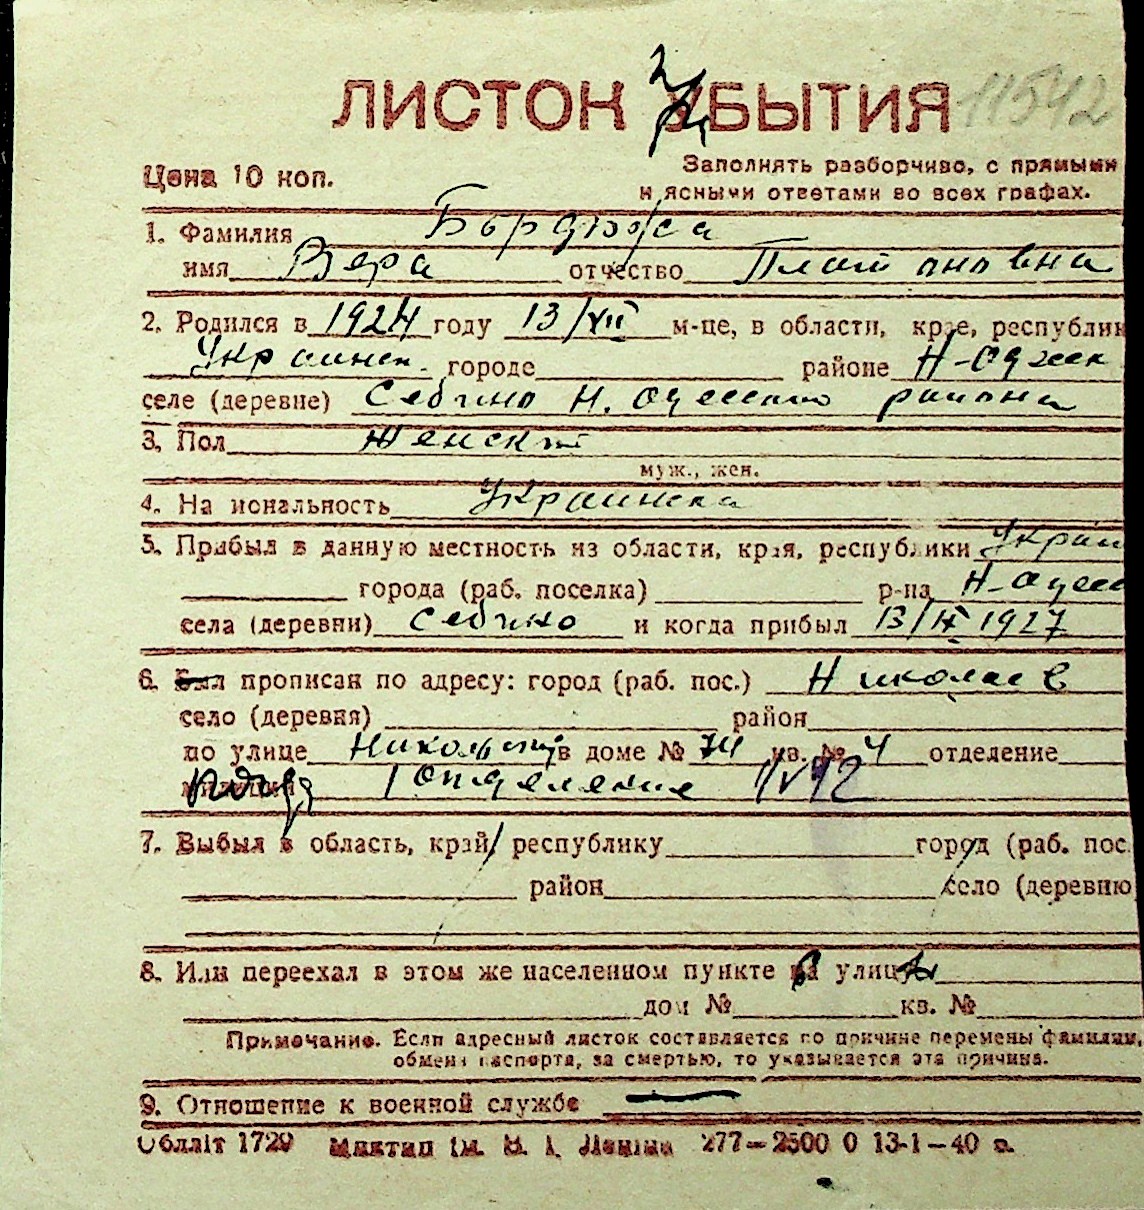 ЛИСТОК УБЫТИЯ 11542
Цена 10 коп.
Заполнять разборчиво, с прямыми
и ясными ответами во всех графах.
1. Фамилия
имя Вера отчество Платоновна
2. Родился в 1924 году 13/VII м-це, в области, крае, республик
Украинск. городе районе Н-Одеск
селе (деревне) Себино Н. Одесского района
3. Пол Женский
муж., жен.
4. На иональность Украинка
5. Прибыл в данную местность из области, края, республики Украи
города (раб. поселка) р-на Н-Одесс
села (деревни) Себино и когда прибыл 13/IX 1927
6. Был прописан по адресу: город (раб. пос.) Николаев
село (деревня) район
по улице в доме № кв. № 4 отделение
милиции 1 отделение
7. Выбыл в область, край, республику город (раб. пос.
район село (деревню
8. Или переехал в этом же населенном пункте на улицу
дом № кв. №
Примечание. Если адресный листок составляется по причине перемены фамилии,
обмена паспорта, за смертью, то указывается эта причина.
9. Отношение к военной службе —
Обллiт 1729 Миктип iм. В. I. Ленiна 277—2500 0 13-1—40 р.